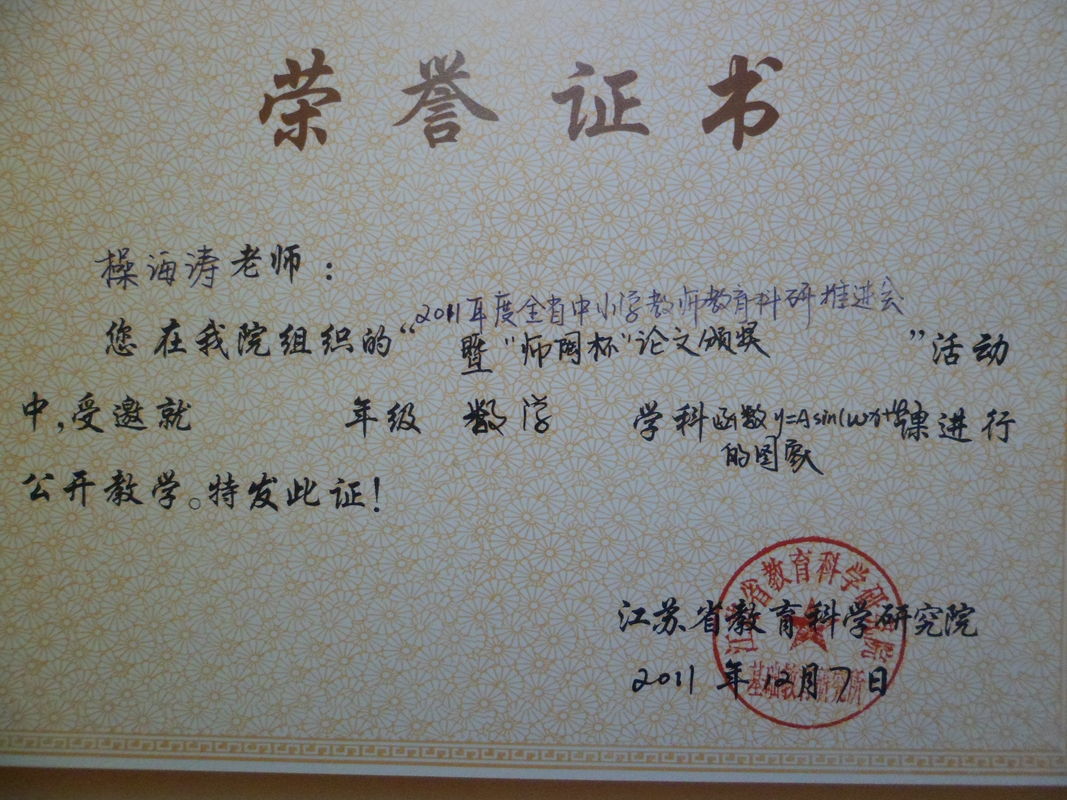 荣誉证书
操海涛老师：
2011年度全省中小学教师教育科研推进会
您在我院组织的“暨“师陶杯”论文颁奖”活动
中,受邀就 年级 数学 学科函数y=Asin(ωx+φ)课进行
的图象
公开教学。特发此证！
江苏省教育科学研究院
2011年12月7日
江苏省教育科学研究院
基础教育研究所